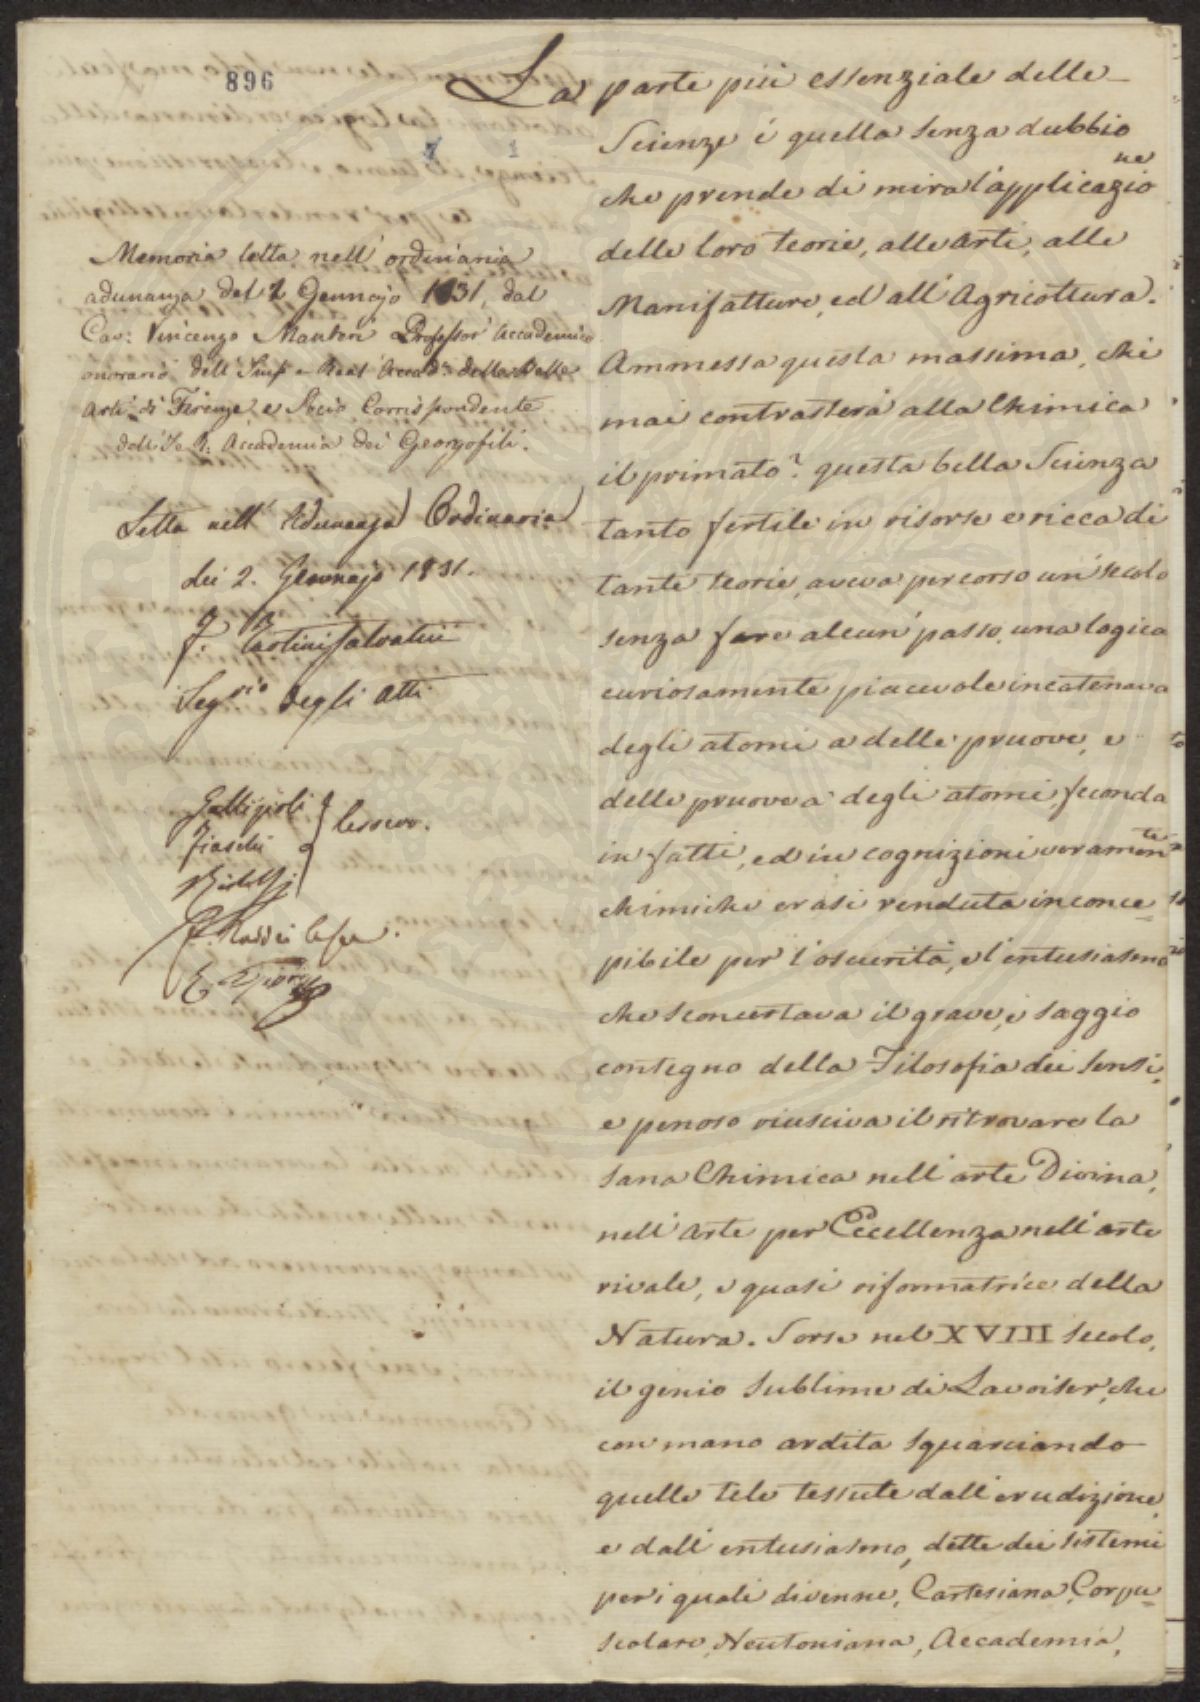 896
1
Memoria letta nell' ordinaria
adunanza del 2 Gennajo 1831, dal
Cav: Vincenzo Manteri Professor Accademico
onorario dell' Imp e Real Accad: delle Belle
Arti di Firenze e Socio Corrispondente
dell' I e R: Accademia dei Georgofili.
Letta nell' Adunanza Ordinaria
dei 2. Gennajo 1831.
F. Tartini Salvatici
Seg.rio degli Atti
Gallizioli
Ridolfi
La parte più essenziale delle
Scienze é quella senza dubbio
che prende di mira l'applicazione
delle loro teorie, alle Arti, alle
Manifatture, ed all' Agricoltura.
Ammessa questa massima, chi
mai contrasterà alla Chimica
il primato? questa bella Scienza
tanto fertile in risorse e ricca di
tante teorie, aveva percorso un' secolo
senza fare alcun' passo, una logica
curiosamente piacevole incatenava
degli atomi a delle pruove, e
delle pruove a degli atomi, feconda
in fatti, ed in cognizioni veramente
chimiche erasi renduta inconce=
pibile per l'oscurità, e l'entusiasmo
che sconcertava il grave, e saggio
contegno della Filosofia dei sensi,
e penoso riusciva il ritrovare la
sana Chimica nell' arte Divina,
nell' Arte per Eccellenza nell' arte
rivale, e quasi riformatrice della
Natura. Sorse nel XVIII secolo,
il genio sublime di Lavoiser, che
con mano ardita squarciando
quelle tele tessute dall' erudizione,
e dall' entusiasmo, dette dei sistemi
per i quali divenne, Cartesiana, Corpu=
scolare, Neutoniana, Accademia,